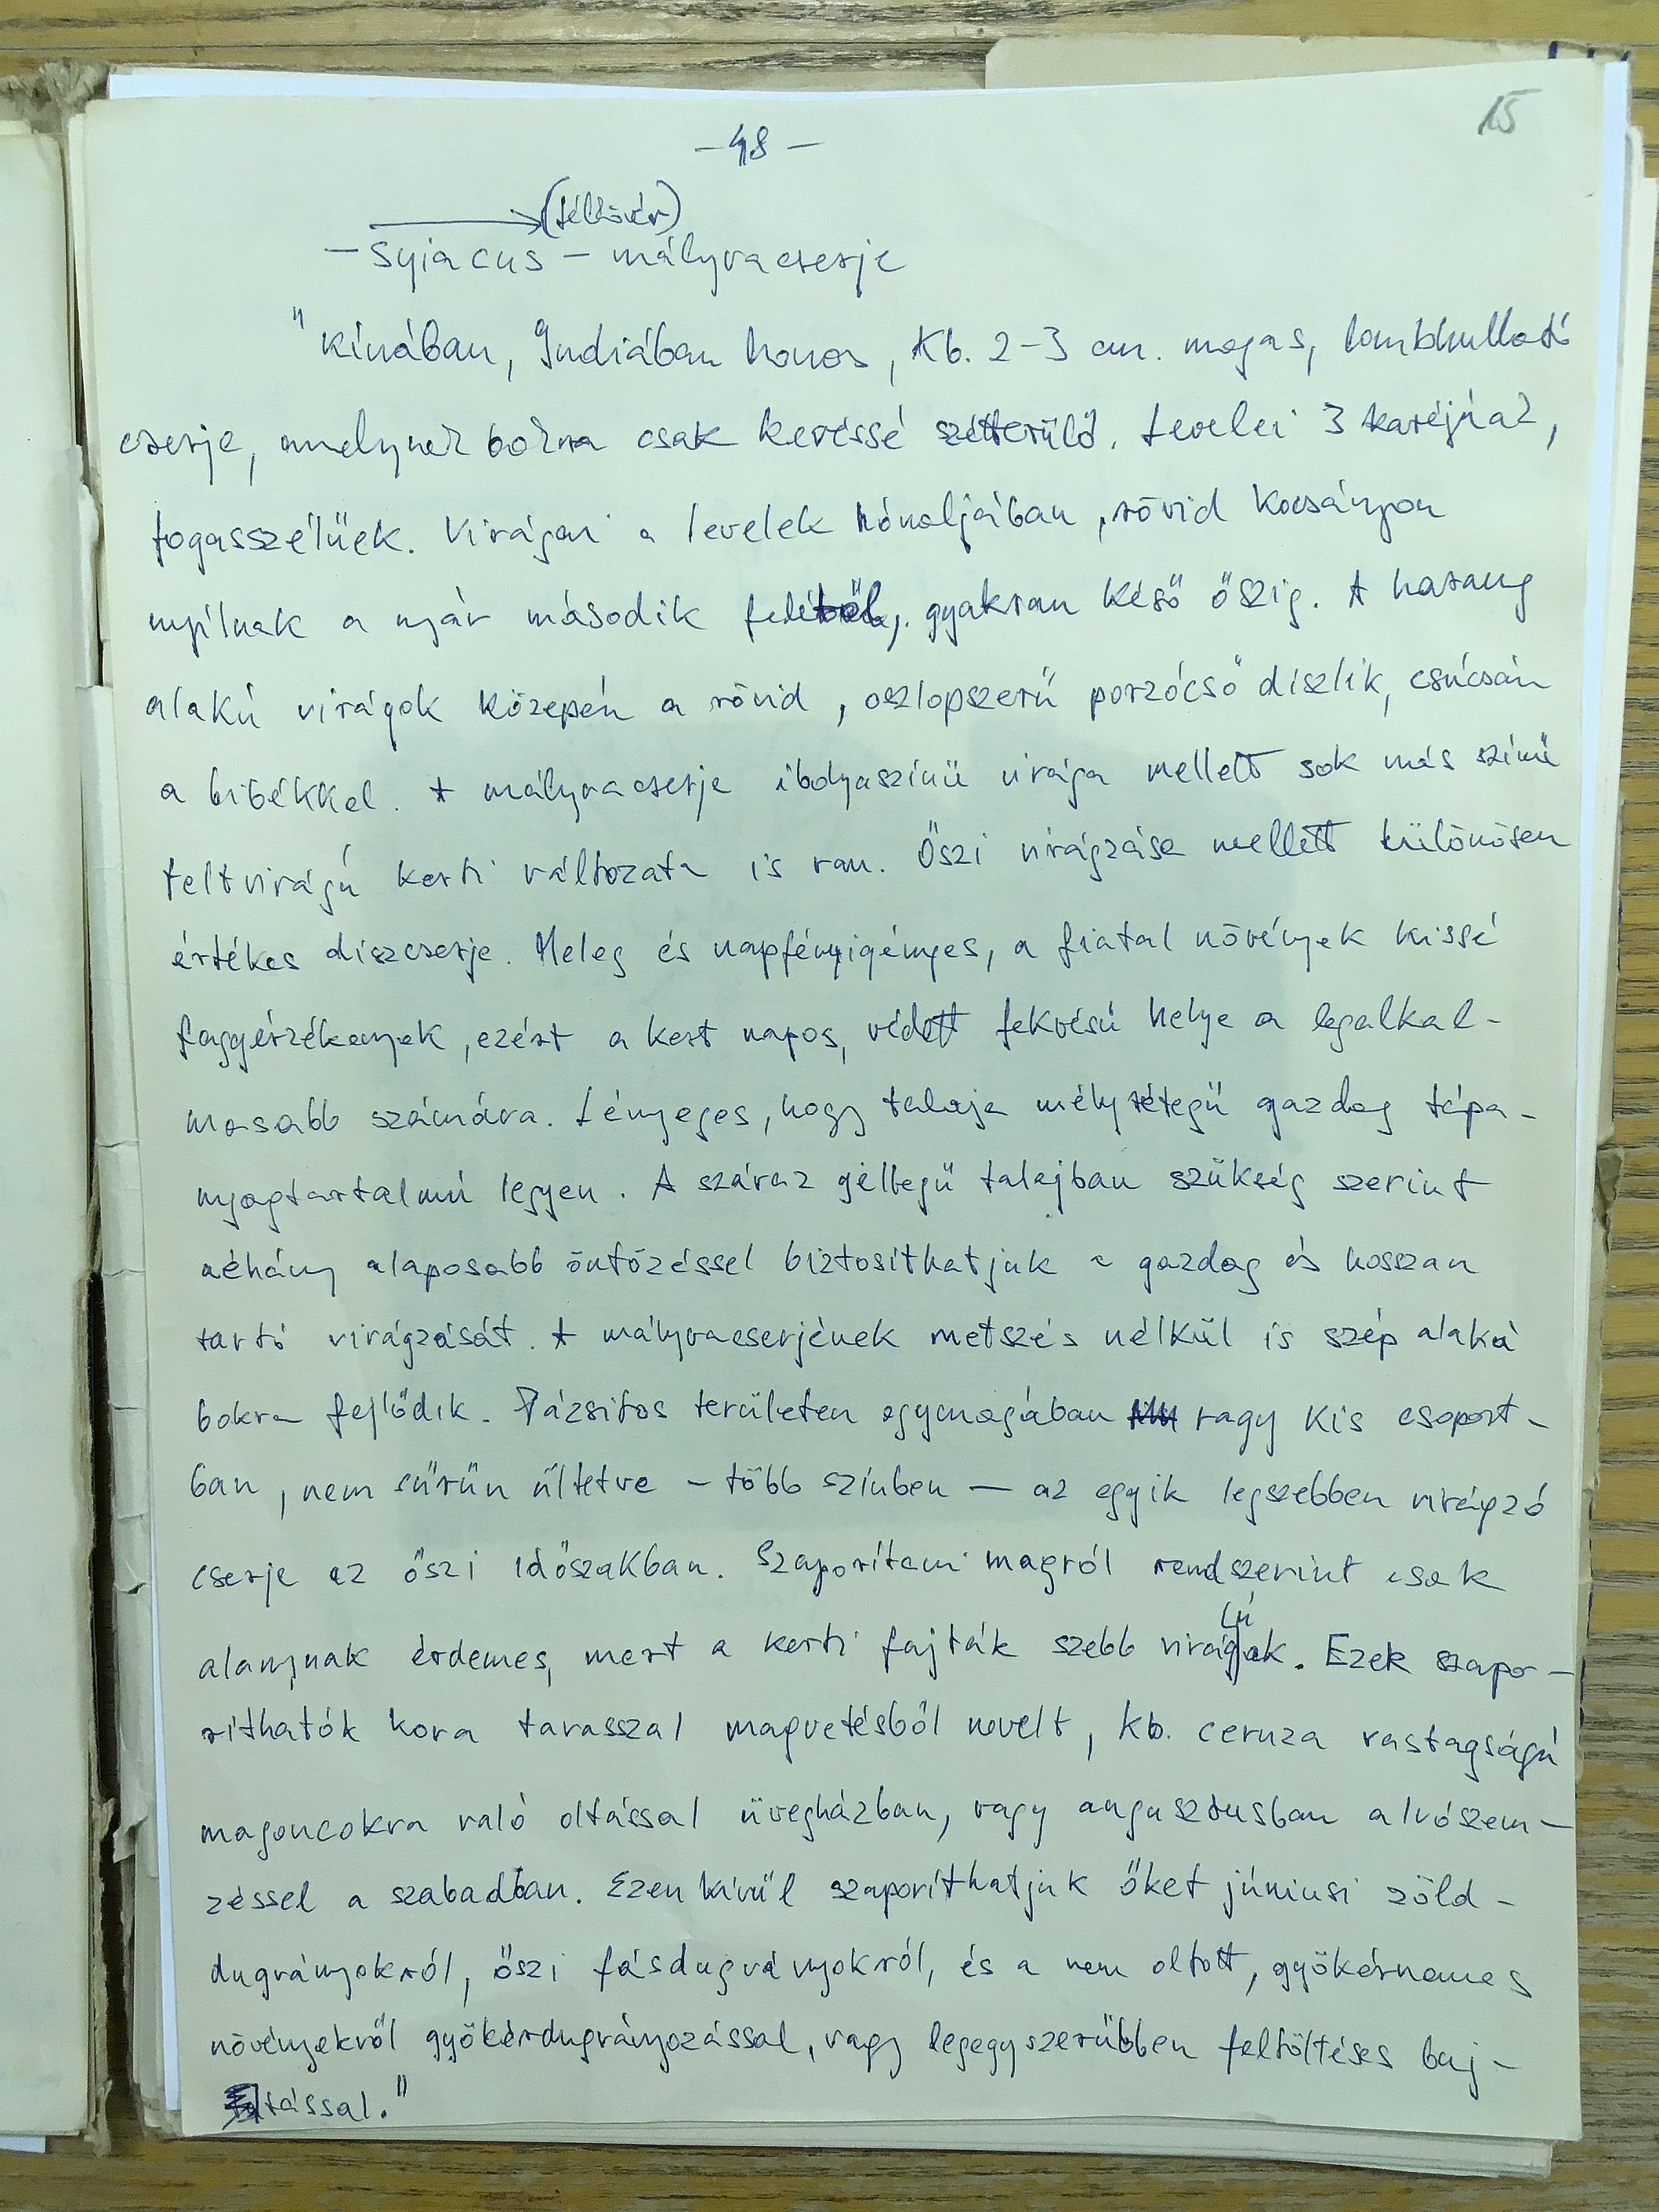 15
-48-
(félkövér)
- syiacus - mályvacserje
"Kínában, Indiában honos, kb. 2-3 cm. magas, lombhullató
cserje, amelynek bokra csak kevéssé szétterülő. Levelei 3 karéjúak,
fogasszélűek. Virágai a levelek hónaljában, rövid kocsányon
nyílnak a nyár második felétől, gyakran késő őszig. A harang
alakú virágok közepén a rövid, oszlopszerű porzócső díszlik, csúcsán
a bibékkel. A mályvacserje ibolyaszínű virága mellett sok más színű
teltvirágú kerti változata is van. Őszi virágzása mellett különösen
értékes díszcserje. Meleg és napfényigényes, a fiatal növények kissé
fagyérzékenyek, ezért a kert napos, védett fekvésű helye a legalkal-
masabb számára. Lényeges, hogy talaja mélyrétegű gazdag tápa-
nyagtartalmú legyen. A száraz jellegű talajban szükség szerint
néhány alaposabb öntözéssel biztosíthatjuk a gazdag és hosszan
tartó virágzását. A mályvacserjének metszés nélkül is szép alakú
bokra fejlődik. Pázsitos területen egymagában vagy kis csoport-
ban, nem sűrűn ültetve - több színben - az egyik legszebben virágzó
cserje az őszi időszakban. Szaporítani magról rendszerint csak
alanynak érdemes, mert a kerti fajták szebb virágúak. Ezek szapo-
ríthatók kora tavasszal magvetésből nevelt, kb. ceruza vastagságú
magoncokra való oltással üvegházban, vagy augusztusban alvószem-
zéssel a szabadban. Ezen kívül szaporíthatjuk őket júniusi zöld-
dugványokról, őszi fásdugványokról, és a nem oltott, gyökérnemes
növényekről gyökérdugványozással, vagy legegyszerűbben feltöltéses buj-
tással."